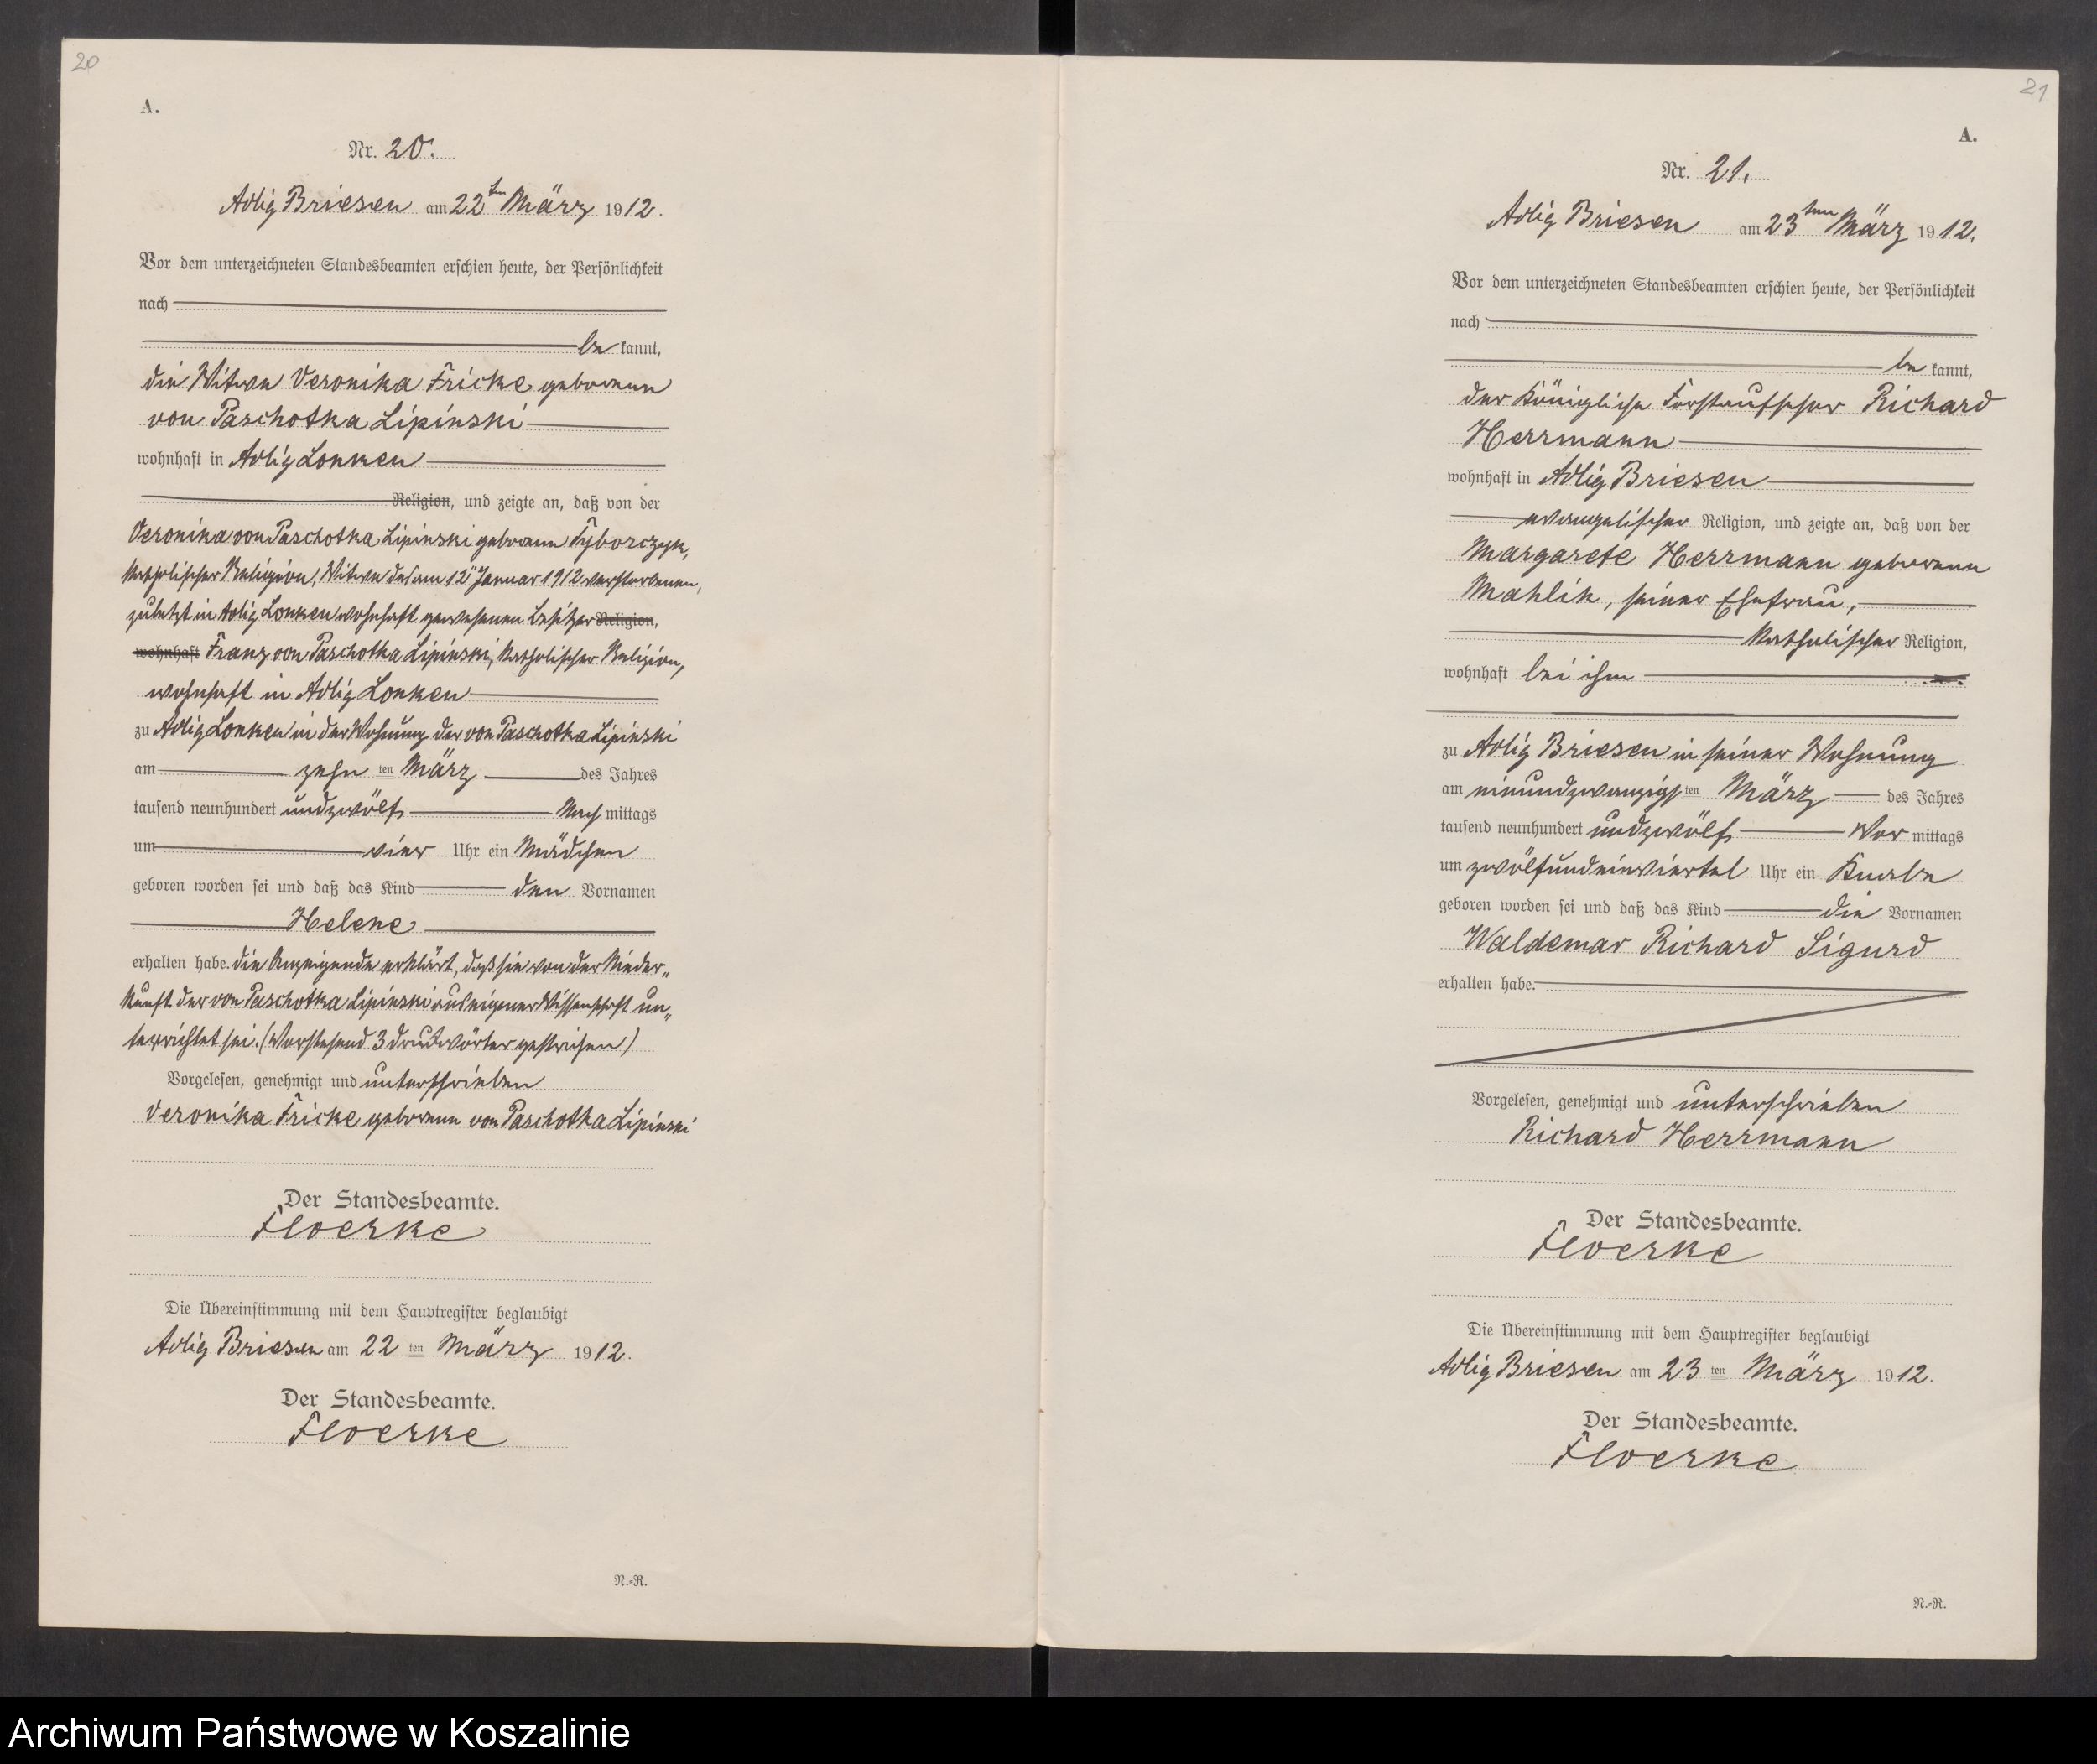 20
A.
Nr. 20.
Adlig Briesen am 22ten März 1912.
Vor dem unterzeichneten Standesbeamten erschien heute, der Persönlichkeit
nach
be kannt,
die Witwe Veronika Fricke geborene
von Paschotka Lipinski
wohnhaft in Adlig Lonken
Religion, und zeigte an, daß von der
Veronika von Paschotka Lipinski geborene Tyborczyk,
katholischer Religion, Witwe des am 12ten Januar 1912 verstorbenen,
zuletzt in Adlig Lonken wohnhaft gewesenen Besitzer Religion,
wohnhaft Franz von Paschotka Lipinski, katholischer Religion,
wohnhaft in Adlig Lonken
zu Adlig Lonken in der Wohnung der von Paschotka Lipinski
am zehn ten März des Jahres
tausend neunhundert undzwölf Nach mittags
um vier Uhr ein Mädchen
geboren worden sei und daß das Kind den Vornamen
Helene
erhalten habe. Die Anzeigende erklärt, daß sie von der Nieder„
kunft der von Paschotka Lipinski aus eigener Wissenschaft un„
terrichtet sei. (Vorstehend 3 Druckwörter gestrichen)
Vorgelesen, genehmigt und unterschrieben
Veronika Fricke geborene von Paschotka Lipinski
Der Standesbeamte.
Floerke
Die Übereinstimmung mit dem Hauptregister beglaubigt
Adlig Briesen am 22 ten März 1912.
Der Standesbeamte.
Floerke
N.-R.
21
A.
Nr. 21.
Adlig Briesen am 23ten März 1912.
Vor dem unterzeichneten Standesbeamten erschien heute, der Persönlichkeit
nach
be kannt,
der Königliche Forstaufseher Richard
Herrmann
wohnhaft in Adlig Briesen
evangelischer Religion, und zeigte an, daß von der
Margarete Herrmann geborene
Mahlik, seiner Ehefrau,
katholischer Religion,
wohnhaft bei ihm
zu Adlig Briesen in seiner Wohnung
am einundzwanzigs ten März des Jahres
tausend neunhundert undzwölf Vor mittags
um zwölfundeinviertel Uhr ein Knabe
geboren worden sei und daß das Kind die Vornamen
Waldemar Richard Sigurd
erhalten habe.
Vorgelesen, genehmigt und unterschrieben
Richard Herrmann
Der Standesbeamte.
Floerke
Die Übereinstimmung mit dem Hauptregister beglaubigt
Adlig Briesen am 23 ten März 1912.
Der Standesbeamte.
Floerke
N.-R.
Archiwum Państwowe w Koszalinie